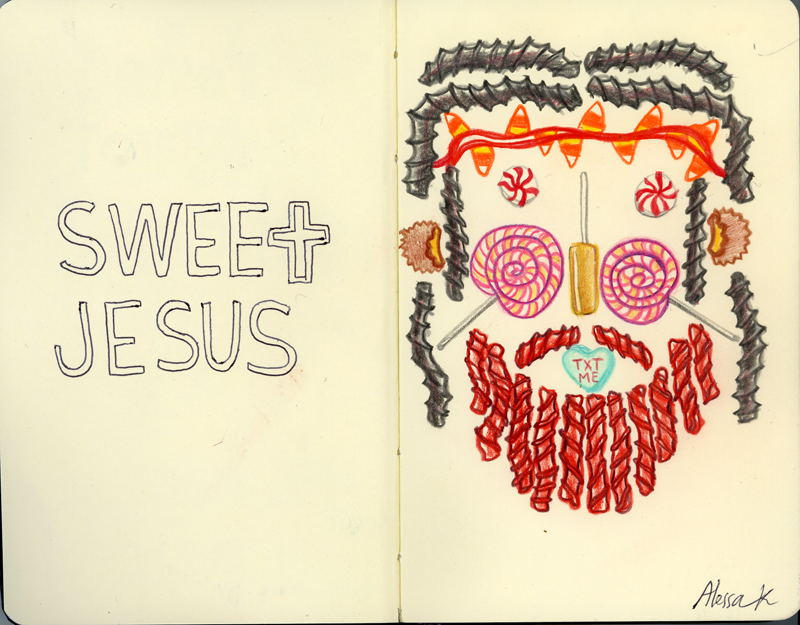 SWEET
JESUS
TXT
ME
Alessa K